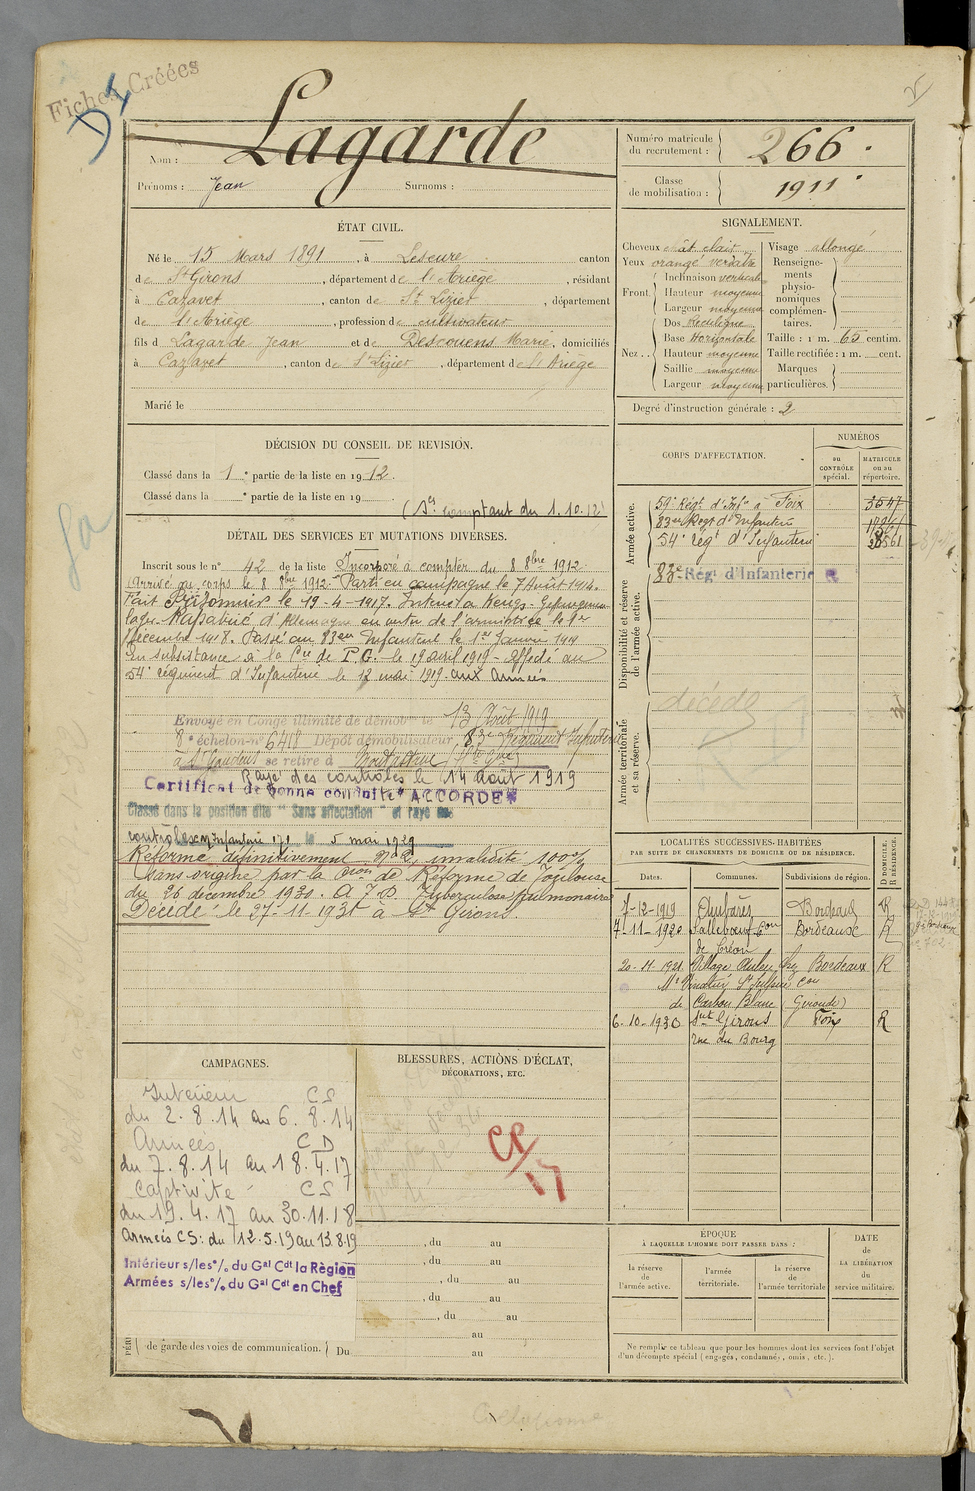 Fiches Créées
Nom : Lagarde
Prénoms : Jean Surnoms :
Numéro matricule du recrutement : 266
Classe de mobilisation : 1911
ÉTAT CIVIL.
Né le 15 Mars 1891, à Lescure canton
de St Girons, département de l'Ariège, résidant
à Cazavet, canton de St Lizier, département
de l'Ariège, profession de cultivateur
fils d Lagarde Jean et de Descouens Marie, domiciliés
à Cazavet, canton de St Lizier, département de l'Ariège
Marié le
SIGNALEMENT.
Cheveux chât clair
Yeux orangé verdâtre
Front. Inclinaison verticale
Hauteur moyenne
Largeur moyenne
Nez . . Dos Rectiligne
Base Horizontale
Hauteur moyenne
Saillie moyenne
Largeur moyenne
Visage allongé
Renseignements physionomiques complémentaires.
Taille : 1 m. 65 centim.
Taille rectifiée : 1 m. cent.
Marques particulières.
Degré d'instruction générale : 2
DÉCISION DU CONSEIL DE REVISION.
Classé dans la 1e partie de la liste en 1912.
Classé dans la e partie de la liste en 19
comptant du 1.10.12
DÉTAIL DES SERVICES ET MUTATIONS DIVERSES.
Inscrit sous le n° 42 de la liste Incorporé à compter du 8 8bre 1912.
Arrivé au corps le 8 8bre 1912. Parti en campagne le 7 Août 1914.
Fait Prisonnier le 19-4-1917. Interné à
lager. Rapatrié d'Allemagne en vertu de l'armistice le 1er
Décembre 1918. Passé au 83e Infanterie le 1er Janvier 1919
En subsistance à la Cie de P.G. le 19 avril 1919 - Affecté au
54e régiment d'Infanterie le 12 mai 1919. aux Armées
Envoyé en Congé illimité de démobon le 13 Août 1919
8e échelon-n° 6418 Dépôt démobilisateur 83e Régiment Infanterie
à St Gaudens se retire à
Rayé des contrôles le 14 août 1919
Certificat de bonne conduite "ACCORDÉ"
Classé dans la position dite "Sans affectation" et rayé des
contrôles le 5 mai 1929
Réformé définitivement n°2, invalidité 100%
sans origine par la Con de Réforme de Toulouse
du 26 décembre 1930. Tuberculose pulmonaire
Décédé le 27-11-1931 à St Girons
CORPS D'AFFECTATION.
NUMÉROS
au CONTRÔLE spécial.
MATRICULE ou au répertoire.
Armée active.
59e Régt d'Infie à Foix 3547
83e Regt d'Infanterie
54e Régt d'Infanterie
Disponibilité et réserve de l'armée active.
83e Régt d'Infanterie
Armée territoriale et sa réserve.
décédé
LOCALITÉS SUCCESSIVES HABITÉES
PAR SUITE DE CHANGEMENTS DE DOMICILE OU DE RÉSIDENCE.
Dates. Communes. Subdivisions de région. D DOMICILE. R RÉSIDENCE.
7-12-1919 Ambarès Bordeaux R
7-11-1920 Sallebœuf Con Bordeaux R
de Créon
20-11-1921 Village Bordeaux R
Con
de Carbon Blanc (Gironde)
6-10-1930 Saint Girons Foix R
rue du Bourg
CAMPAGNES.
Intérieur CS
du 2.8.14 au 6.8.14
Armées CD
du 7.8.14 au 18.4.17
Captivité CS
du 19.4.17 au 30.11.18
Armées CS: du 12.5.19 au 13.8.19
Intérieur s/les°/. du Gal Cdt la Région
Armées s/les°/. du Gal Cdt en Chef
BLESSURES, ACTIONS D'ÉCLAT,
DÉCORATIONS, ETC.
, du au
, du au
, du au
, du au
, du au
au
de garde des voies de communication. Du au
ÉPOQUE
À LAQUELLE L'HOMME DOIT PASSER DANS :
la réserve de l'armée active.
l'armée territoriale.
la réserve de l'armée territoriale
DATE de LA LIBÉRATION du service militaire.
Ne remplir ce tableau que pour les hommes dont les services font l'objet
d'un décompte spécial (engagés, condamnés, omis, etc.).